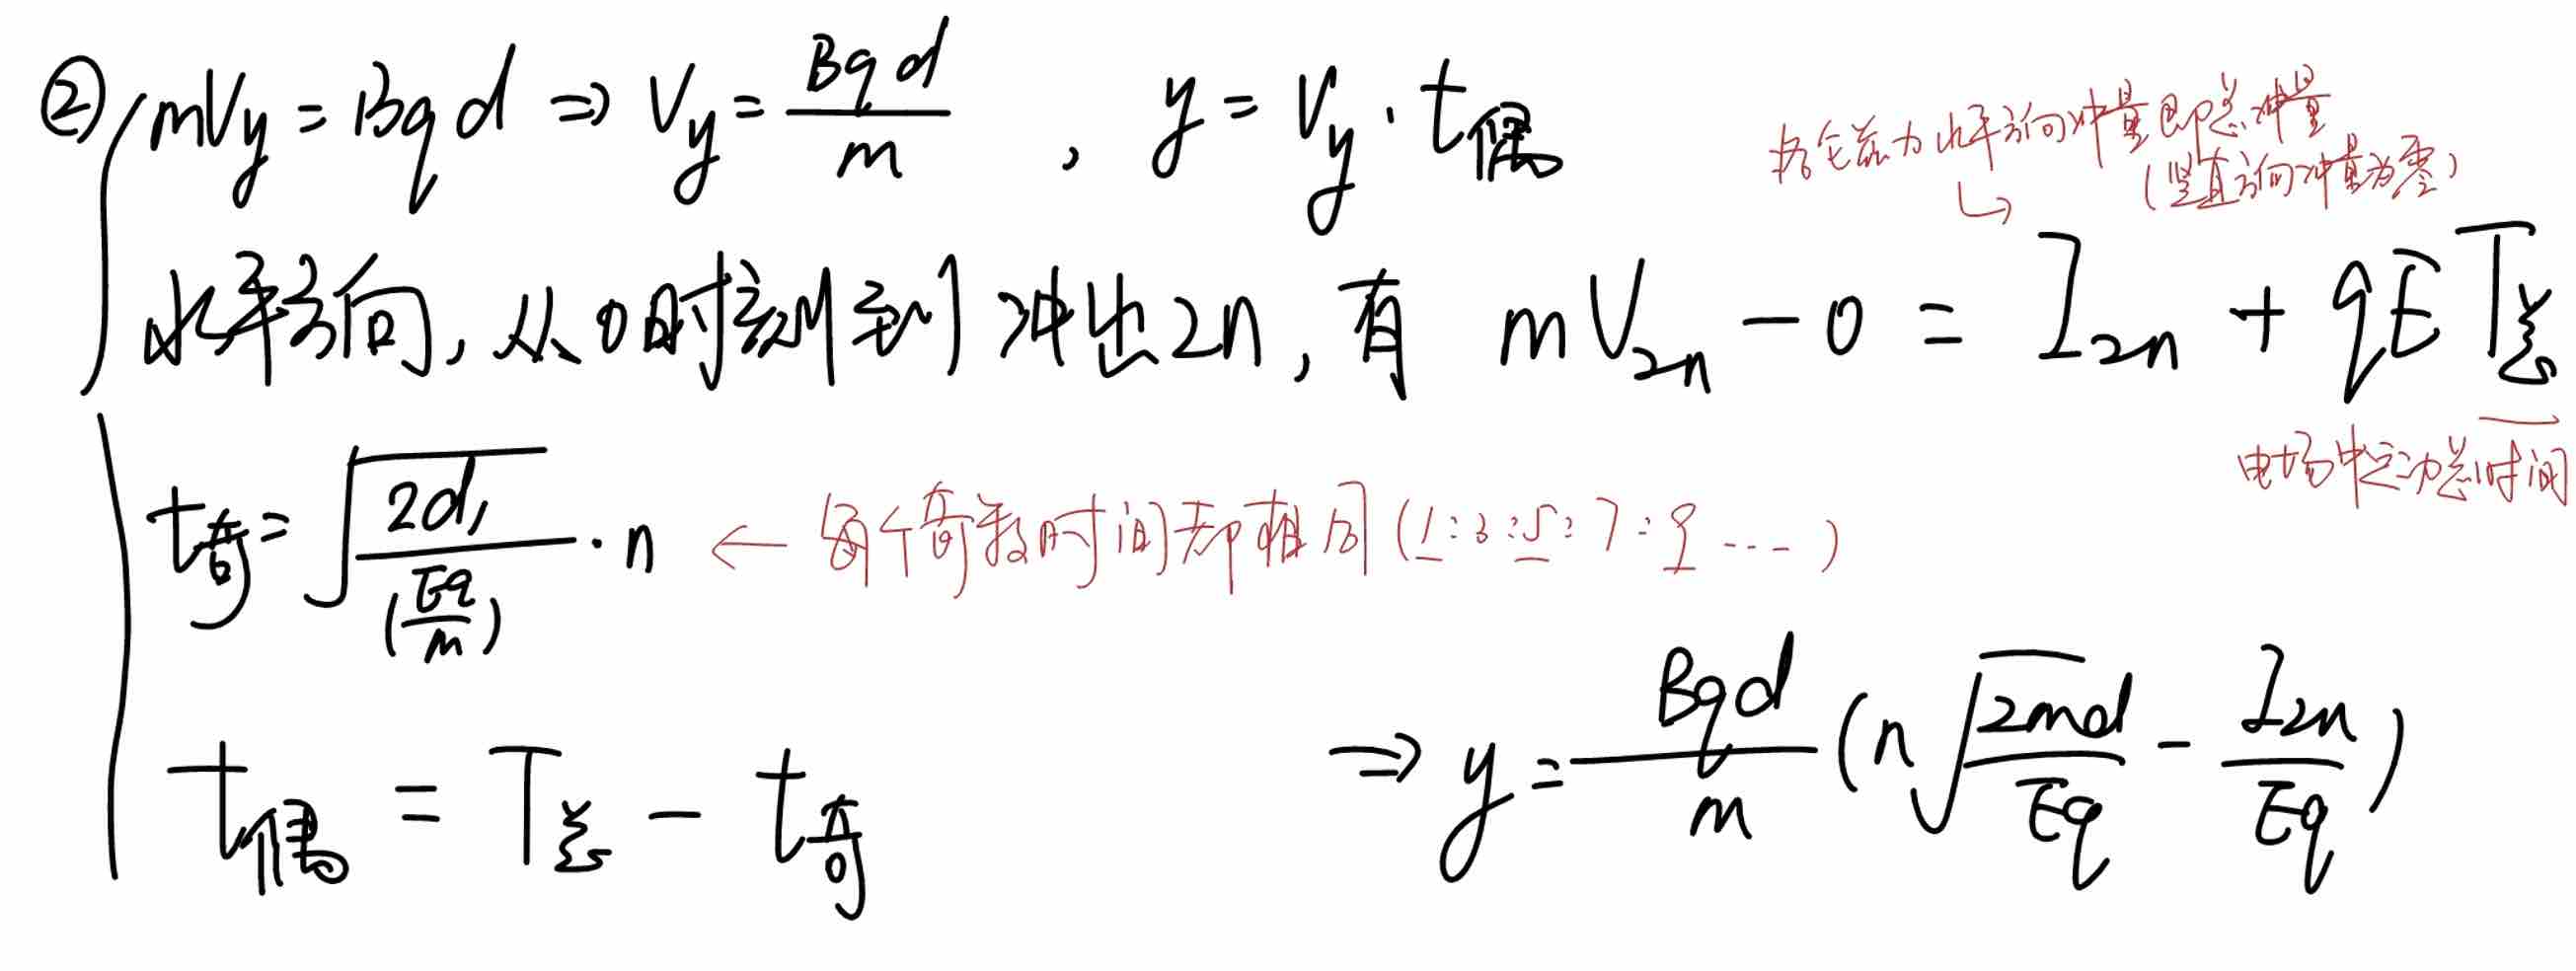 ② mVy = Bqd ⇒ Vy = Bqd/m , y = Vy · t偶
洛仑兹力水平方向冲量即总冲量
(竖直方向冲量为零)
↳
水平方向, 从0时刻到冲出2n, 有 mV₂ₙ - 0 = I₂ₙ + qE T总
电场中运动总时间
t奇 = √(2d/(Eq/m)) · n ← 每个奇数时间都相同 (1:3:5:7:9 ----)
t偶 = T总 - t奇
⇒ y = Bqd/m (n√(2md/Eq) - I₂ₙ/Eq)